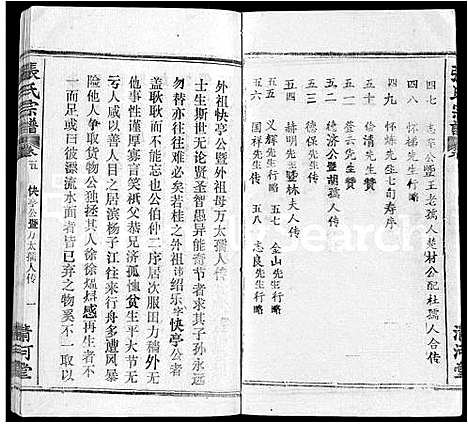 四七 志寧公暨王老孺人是材公配杜孺人合传
四八 怀梯先生行略
四九 怀炼先生七旬寿序
五十 绘清先生赞
五一 萱云先生赞
五二 德济公暨胡孺人传
五三 德保先生行略
五四 赫明先生暨林夫人传
五五 先生行略 五七 金山先生行略
五六 国祥先生行略 五八 志良先生行略
清河堂
外祖快亭公暨外祖母万太孺人传
士生斯世无论贤圣智愚异能奇节者求其子孙永远
勿替亦往往难必矣若桂之外祖讳绍乐字快亭公者
盖耿耿而不能忘也公伯仲二序居次服田力穑外无
亏人咸以善人目之居滨杨子江往来行舟多遭风暴
险他人争取货物公独拯其人徐徐煴感再生者不
一足日或曰彼漂流水面者皆已弃之物奚不一取
張氏宗譜
卷五 快亭公暨万太孺人传 一
清河堂